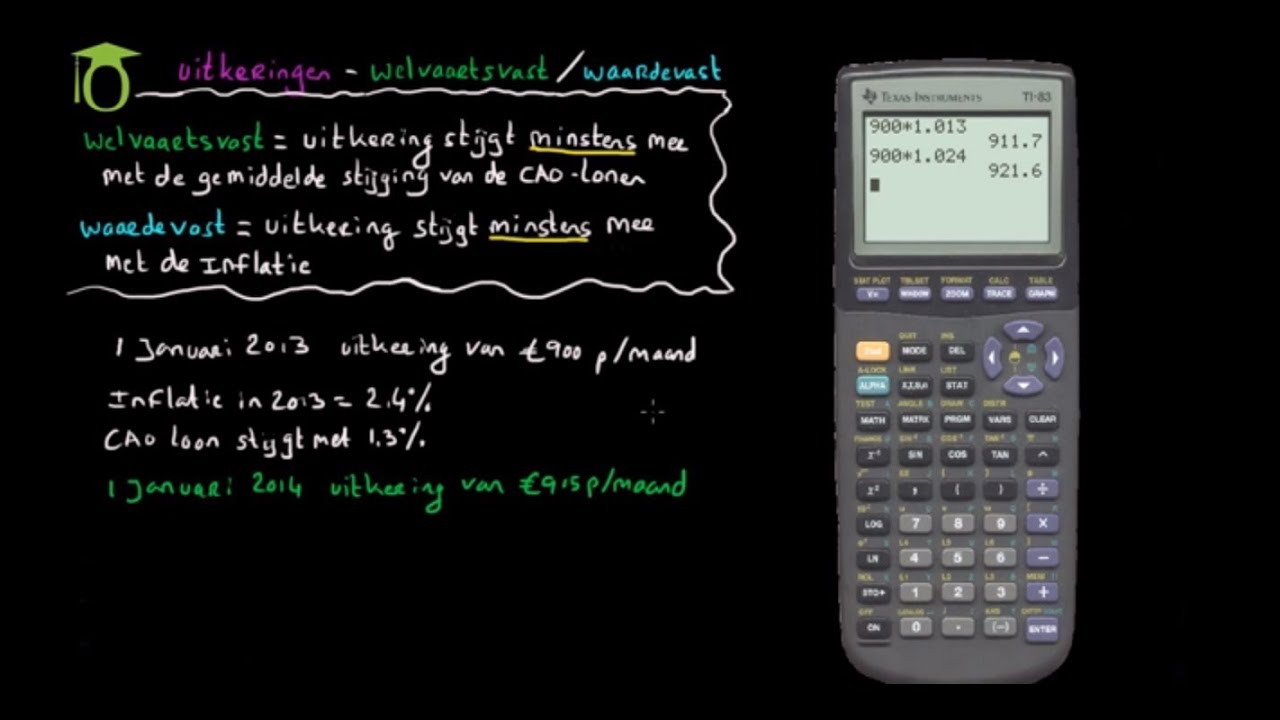 uitkeringen - welvaartsvast / waardevast
welvaartsvast = uitkering stijgt minstens mee
met de gemiddelde stijging van de CAO-lonen
waardevast = uitkering stijgt minstens mee
met de Inflatie
1 Januari 2013 uitkering van €900 p/maand
Inflatie in 2013 = 2.4%
CAO loon stijgt met 1.3%.
1 Januari 2014 uitkering van €915 p/maand
TEXAS INSTRUMENTS TI-83
900*1.013
911.7
900*1.024
921.6
STAT PLOT TBLSET FORMAT CALC TABLE
Y= WINDOW ZOOM TRACE GRAPH
QUIT INS
2nd MODE DEL
A-LOCK LINK LIST
ALPHA X,T,θ,n STAT
TEST A ANGLE B DRAW C DISTR
MATH MATRX PRGM VARS CLEAR
SIN COS TAN ^
x² , ( ) ÷
LOG 7 8 9 ×
LN 4 5 6 −
STO 1 2 3 +
OFF
ON 0 . (−) ENTER